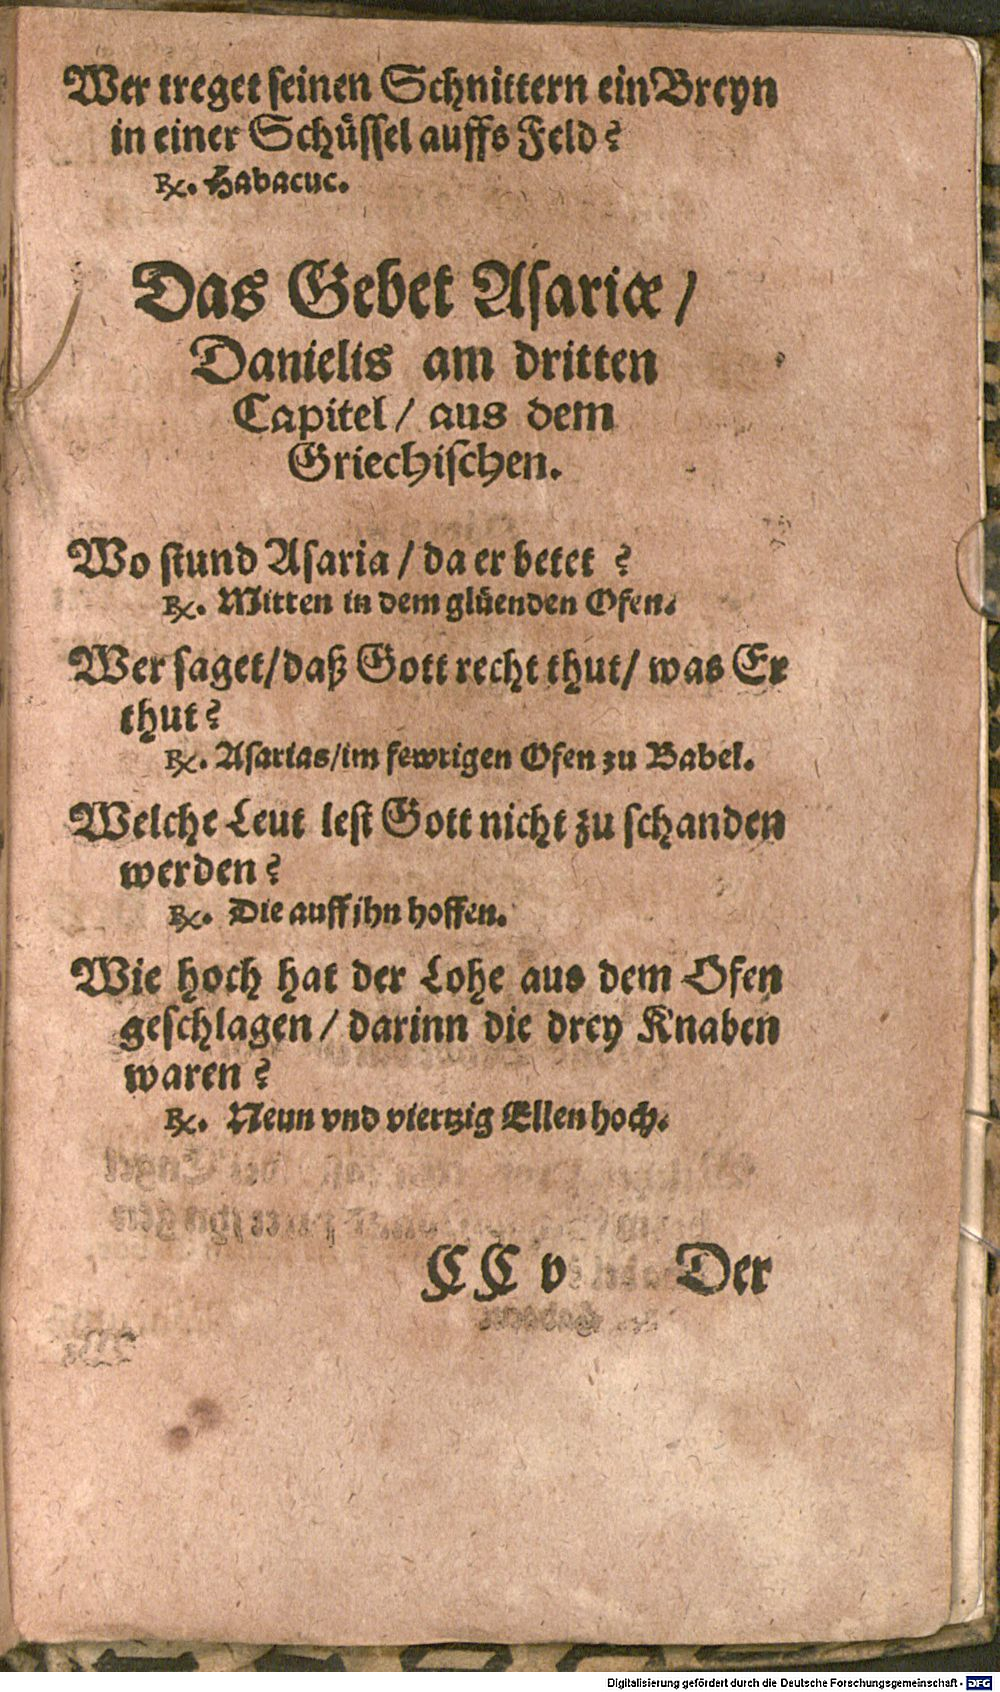 Wer treget seinen Schnittern ein Breyn
in einer Schüssel auffs Feld?
℞. Habacuc.
Das Gebet Asariæ /
Danielis am dritten
Capitel / aus dem
Griechischen.
Wo stund Asaria / da er betet ?
℞. Mitten in dem glüenden Ofen.
Wer saget/daß Gott recht thut/ was Er
thut?
℞. Asarias/im fewrigen Ofen zu Babel.
Welche Leut lest Gott nicht zu schanden
werden?
℞. Die auff ihn hoffen.
Wie hoch hat der Lohe aus dem Ofen
geschlagen / darinn die drey Knaben
waren ?
℞. Neun vnd viertzig Ellen hoch.
CC v Der
Digitalisierung gefördert durch die Deutsche Forschungsgemeinschaft - DFG